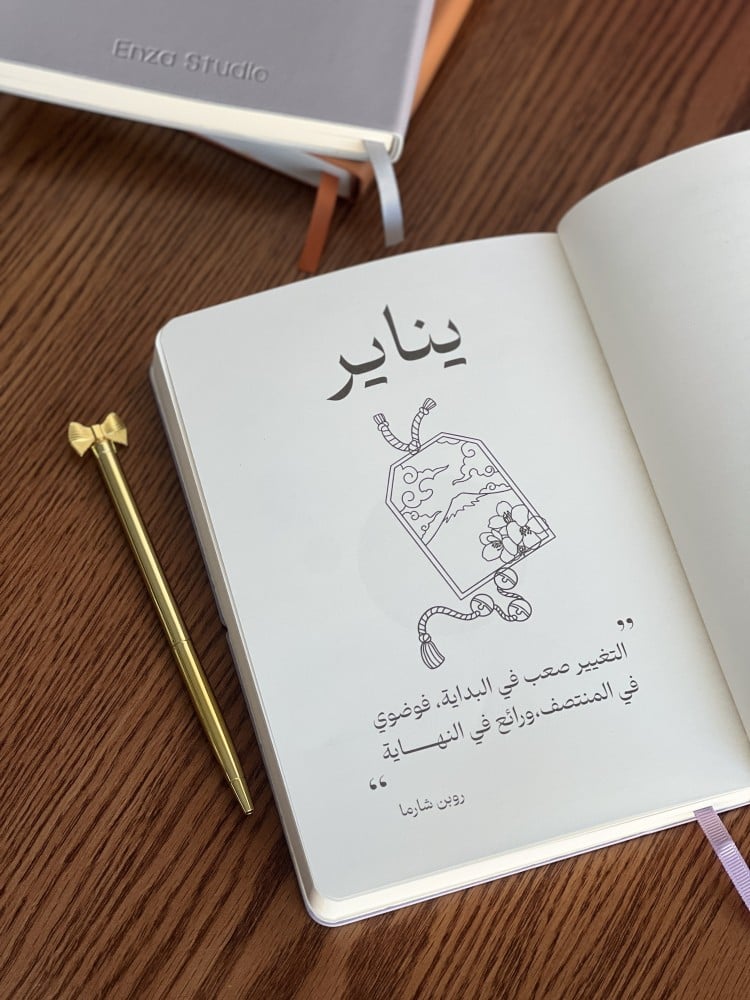 Enza Studio
يناير
”
التغيير صعب في البداية، فوضوي
في المنتصف،ورائع في النهـــــاية
“
روبن شارما